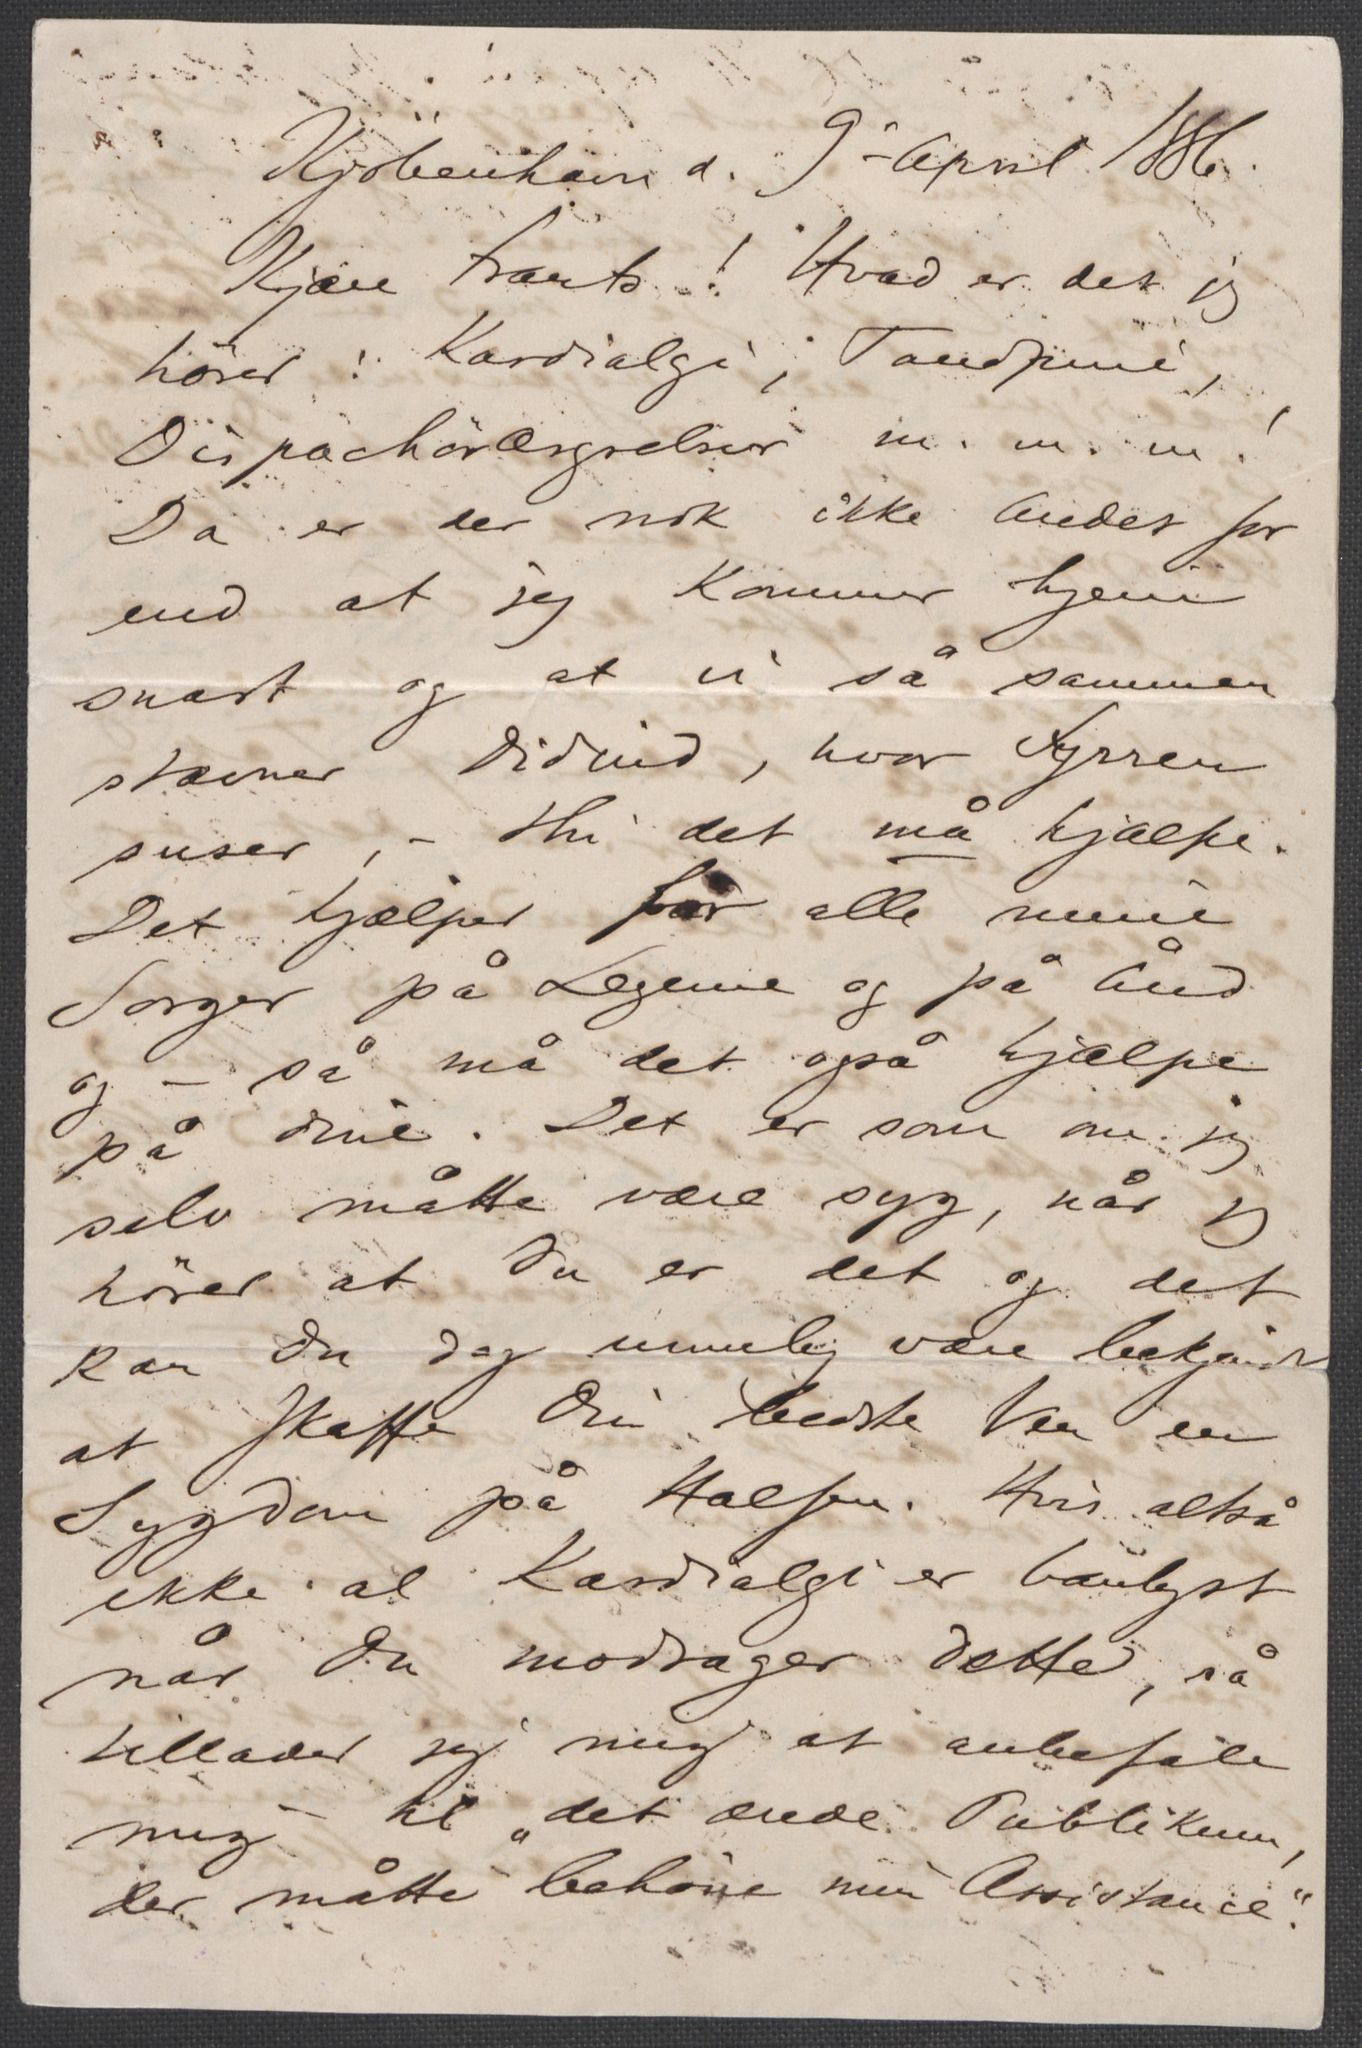 Kjöbenhavn d. 9 April 1886.
Kjære Frants! Hvad er det jeg
hörer: Kardialgi, Tandpine,
Dispachörærgrelser m. m. m!
Da er der nok ikke Andet for
end at jeg kommer hjem
snart og at vi så sammen
stævner didind, hvor Fyrren
suser, – thi det må hjælpe.
Det hjælper for alle mine
Sorger på Legeme og på Ånd
og – så må det også hjælpe
på dine. Det er som om jeg
selv måtte være syg, når jeg
hörer at Du er det og det
kan Du dog umulig være bekjendt
at skaffe Din bedste Ven en
Sygdom på Halsen. Hvis altså
ikke al Kardialgi er banlyst
når Du modtager dette, så
tillader jeg mig at anbefale
mig til „det ærede Publikum,
der måtte behöve min Assistance“.